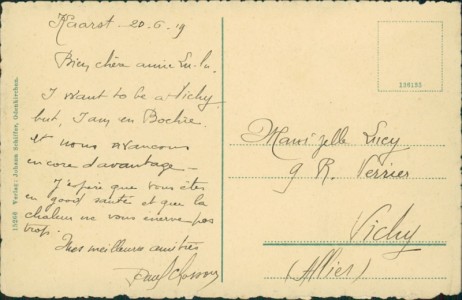 Kaarst 20-6-19
Bien chère amie Lu-lu.
I want to be a Vichy
but, I am en Bochie.
et nous avancons
encore d'avantage -
J'espère que vous êtes
en good santé et que la
chaleur ne vous énerve pas
trop.
Mes meilleures
13266 Verlag: Johann Schiffer, Odenkirchen.
136153
Mam'zelle Lucy
9 R. Verrier
Vichy
(Allier)